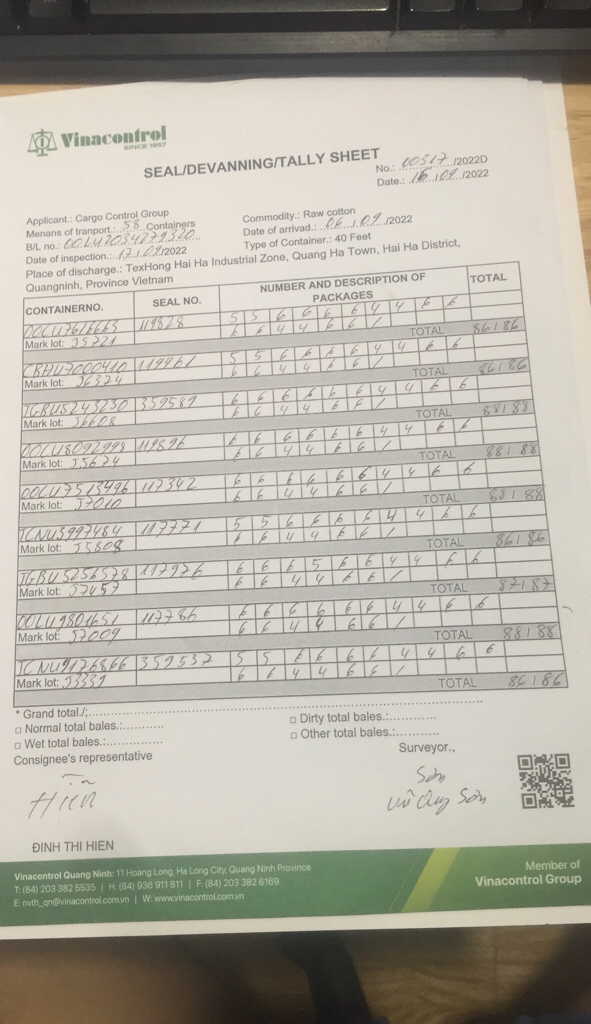 Vinacontrol
SINCE 1957
SEAL/DEVANNING/TALLY SHEET
No.: 00317/2022D
Date.: 16/09/2022
Applicant.: Cargo Control Group
Menans of tranport.: 58 Containers
B/L no.: OOLU7034279320
Date of inspection.: 12/09/2022
Commodity.: Raw cotton
Date of arrivad.: 06/09/2022
Type of Container.: 40 Feet
Place of discharge.: TexHong Hai Ha Industrial Zone, Quang Ha Town, Hai Ha District,
Quangninh, Province Vietnam
CONTAINERNO. SEAL NO. NUMBER AND DESCRIPTION OF PACKAGES TOTAL
OOLU7616663 119828 5 5 6 6 6 6 4 4 6 6
6 6 4 4 6 6 /
Mark lot: 35221 TOTAL 86/86
CBHU7000410 119961 5 5 6 6 6 6 4 4 6 6
6 6 4 4 6 6 /
Mark lot: 36324 TOTAL 86/86
TGBU5243230 359589 6 6 6 6 6 6 4 4 6 6
6 6 4 4 6 6 /
Mark lot: 36608 TOTAL 88/88
OOLU8092998 119896 6 6 6 6 6 6 4 4 6 6
6 6 4 4 6 6 /
Mark lot: 35674 TOTAL 88/88
OOCU7513496 117342 6 6 6 6 6 6 4 4 6 6
6 6 4 4 6 6 /
Mark lot: 37010 TOTAL 88/88
TCNU3997484 117771 5 5 6 6 6 6 4 4 6 6
6 6 4 4 6 6 /
Mark lot: 35808 TOTAL 86/86
TGBU5256578 117976 6 6 6 5 6 6 4 4 6 6
6 6 4 4 6 6 /
Mark lot: 37457 TOTAL 87/87
OOLU9801651 117786 6 6 6 6 6 6 4 4 6 6
6 6 4 4 6 6 /
Mark lot: 37009 TOTAL 88/88
TCNU9176866 359532 5 5 6 6 6 6 4 4 6 6
6 6 4 4 6 6 /
Mark lot: 33339 TOTAL 86/86
* Grand total./:
□ Normal total bales.:............
□ Dirty total bales.:............
□ Wet total bales.:..............
□ Other total bales.:...........
Consignee's representative
Surveyor.,
Hien
Sơn
Vũ Duy Sơn
ĐINH THI HIEN
Vinacontrol Quang Ninh: 11 Hoang Long, Ha Long City, Quang Ninh Province
T: (84) 203 382 5535 | H: (84) 936 911 811 | F: (84) 203 382 6169
E: nvth_qn@vinacontrol.com.vn | W: www.vinacontrol.com.vn
Member of
Vinacontrol Group